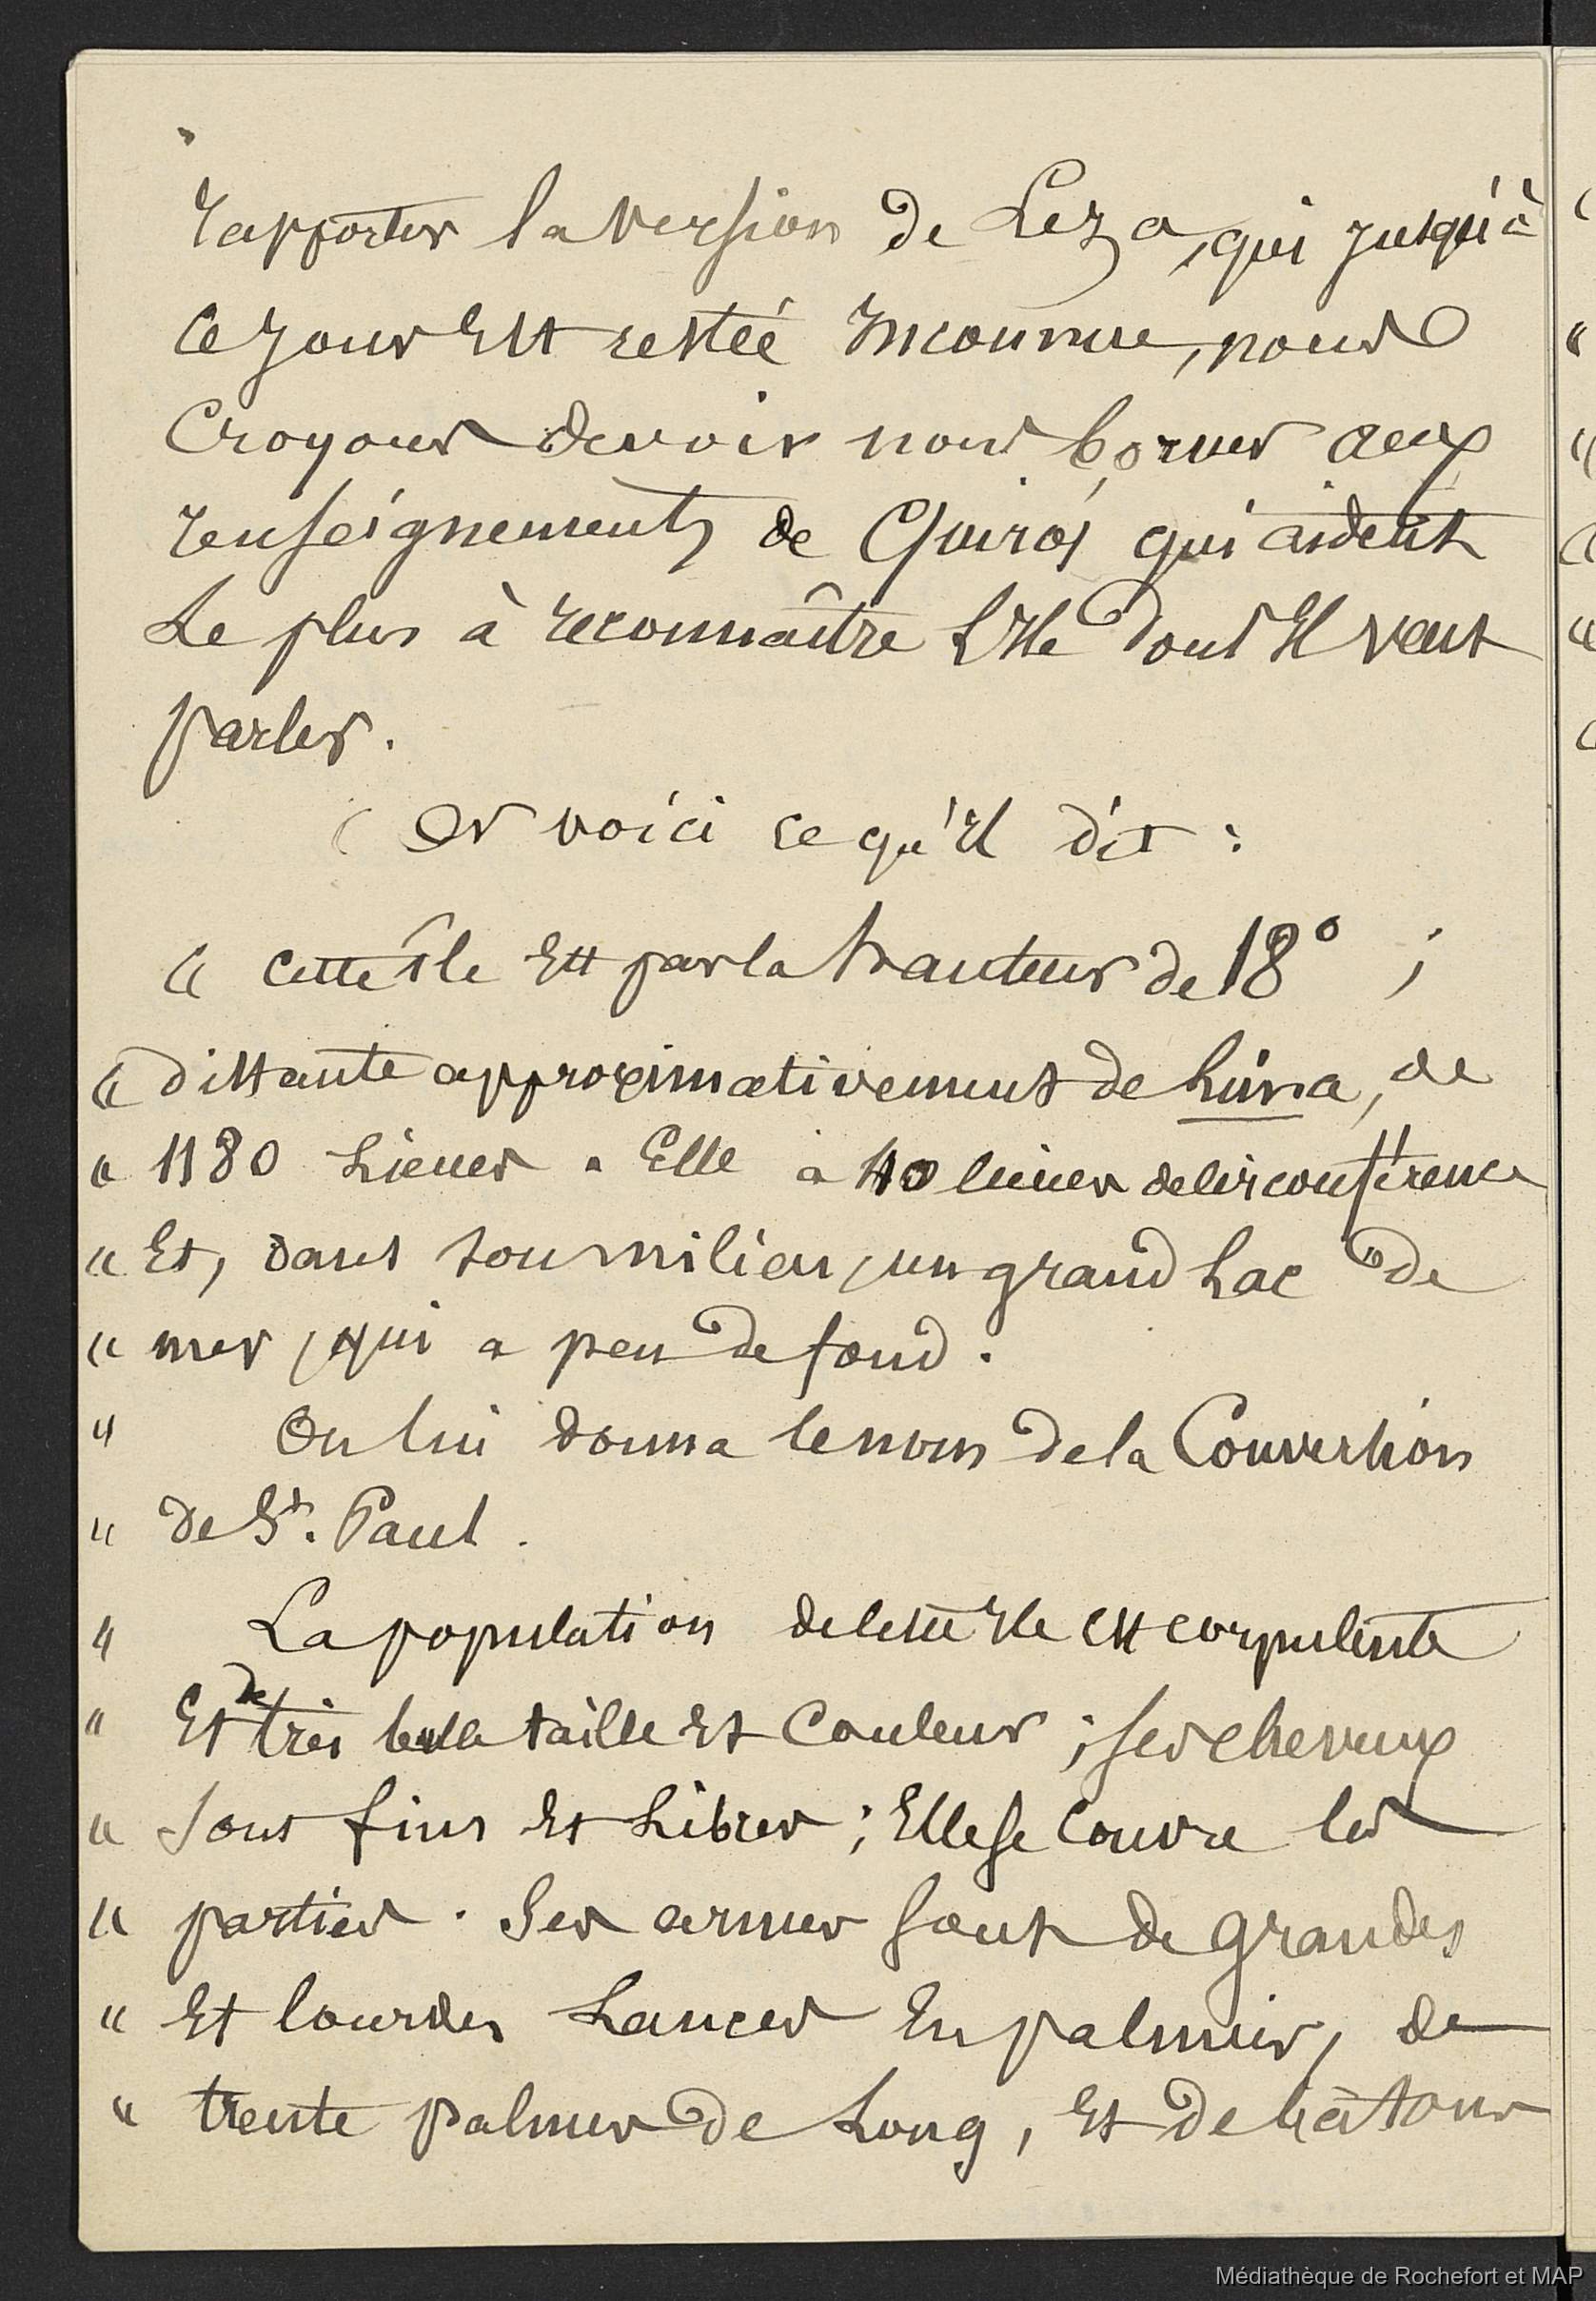 rapporter la version de Leza, qui jusqu'à
ce jour est restée inconnue, nous
croyons devoir nous borner aux
renseignements de Quiros qui aident
le plus à reconnaître l'île dont il veut
parler.
Or voici ce qu'il dit :
" Cette île est par la hauteur de 18° ;
" distante approximativement de Lima, de
" 1180 lieues. Elle a 40 lieues de circonférence
" et, dans son milieu, un grand lac de
" mer, qui a peu de fond.
" On lui donna le nom de la Conversion
" de St. Paul.
" La population de cette île est corpulente
" et de très belle taille et couleur ; ses cheveux
" sont fins et libres ; elle se couvre les
" parties. Ses armes sont de grandes
" et lourdes lances en palmier, de
" trente palmes de long, et de bâtons
Médiathèque de Rochefort et MAP